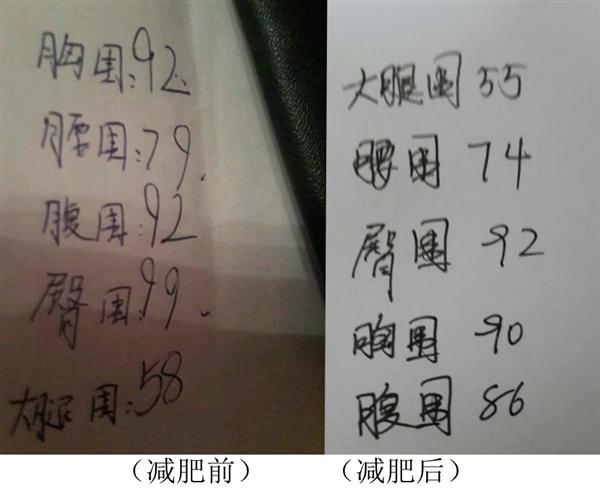 胸围:92.
腰围:79.
腹围:92
臀围:99.
大腿围:58
大腿围 55
腰围 74
臀围 92
胸围 90
腹围 86
（减肥前）
（减肥后）